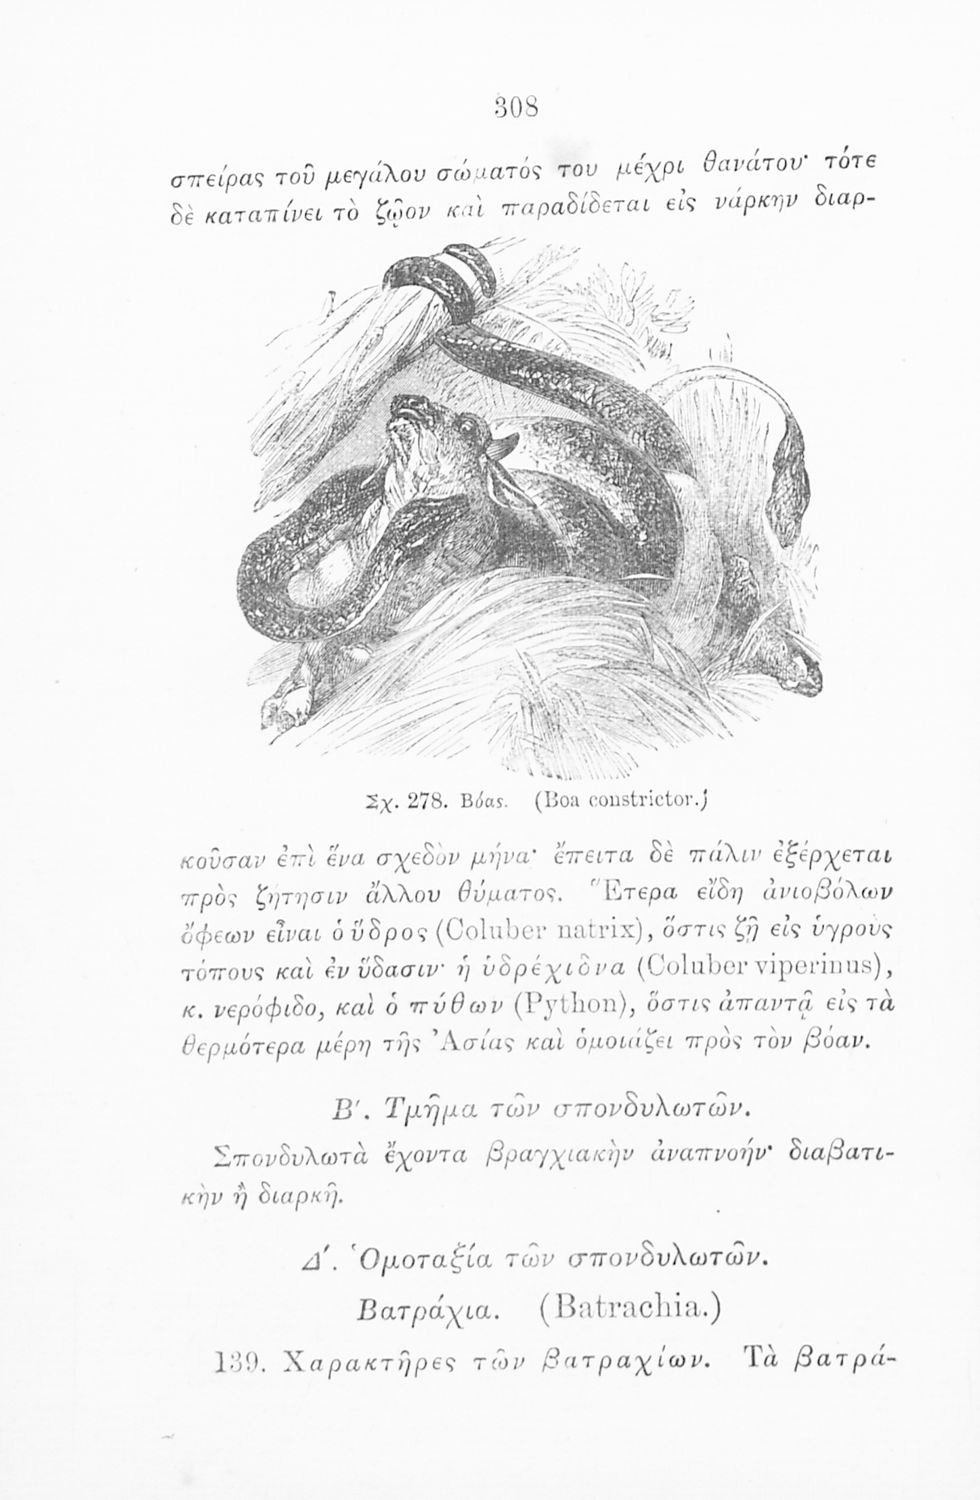 308
σπείρας τοῦ μεγάλου σώματός του μέχρι θανάτου· τότε
δὲ καταπίνει τὸ ζῷον καὶ παραδίδεται εἰς νάρκην διαρ-
Σχ. 278. Βόας. (Boa constrictor.)
κοῦσαν ἐπὶ ἕνα σχεδὸν μῆνα· ἔπειτα δὲ πάλιν ἐξέρχεται
πρὸς ζήτησιν ἄλλου θύματος. Ἕτερα εἴδη ἀνιοβόλων
ὄφεων εἶναι ὁ ὕδρος (Coluber natrix), ὅστις ζῇ εἰς ὑγροὺς
τόπους καὶ ἐν ὕδασιν· ἡ ὑδρέχιδνα (Coluber viperinus),
κ. νερόφιδο, καὶ ὁ πύθων (Python), ὅστις ἀπαντᾷ εἰς τὰ
θερμότερα μέρη τῆς Ἀσίας καὶ ὁμοιάζει πρὸς τὸν βόαν.
Β′. Τμῆμα τῶν σπονδυλωτῶν.
Σπονδυλωτὰ ἔχοντα βραγχιακὴν ἀναπνοήν· διαβατι-
κὴν ἢ διαρκῆ.
Δ′. Ὁμοταξία τῶν σπονδυλωτῶν.
Βατράχια. (Batrachia.)
139. Χαρακτῆρες τῶν βατραχίων. Τὰ βατρά-